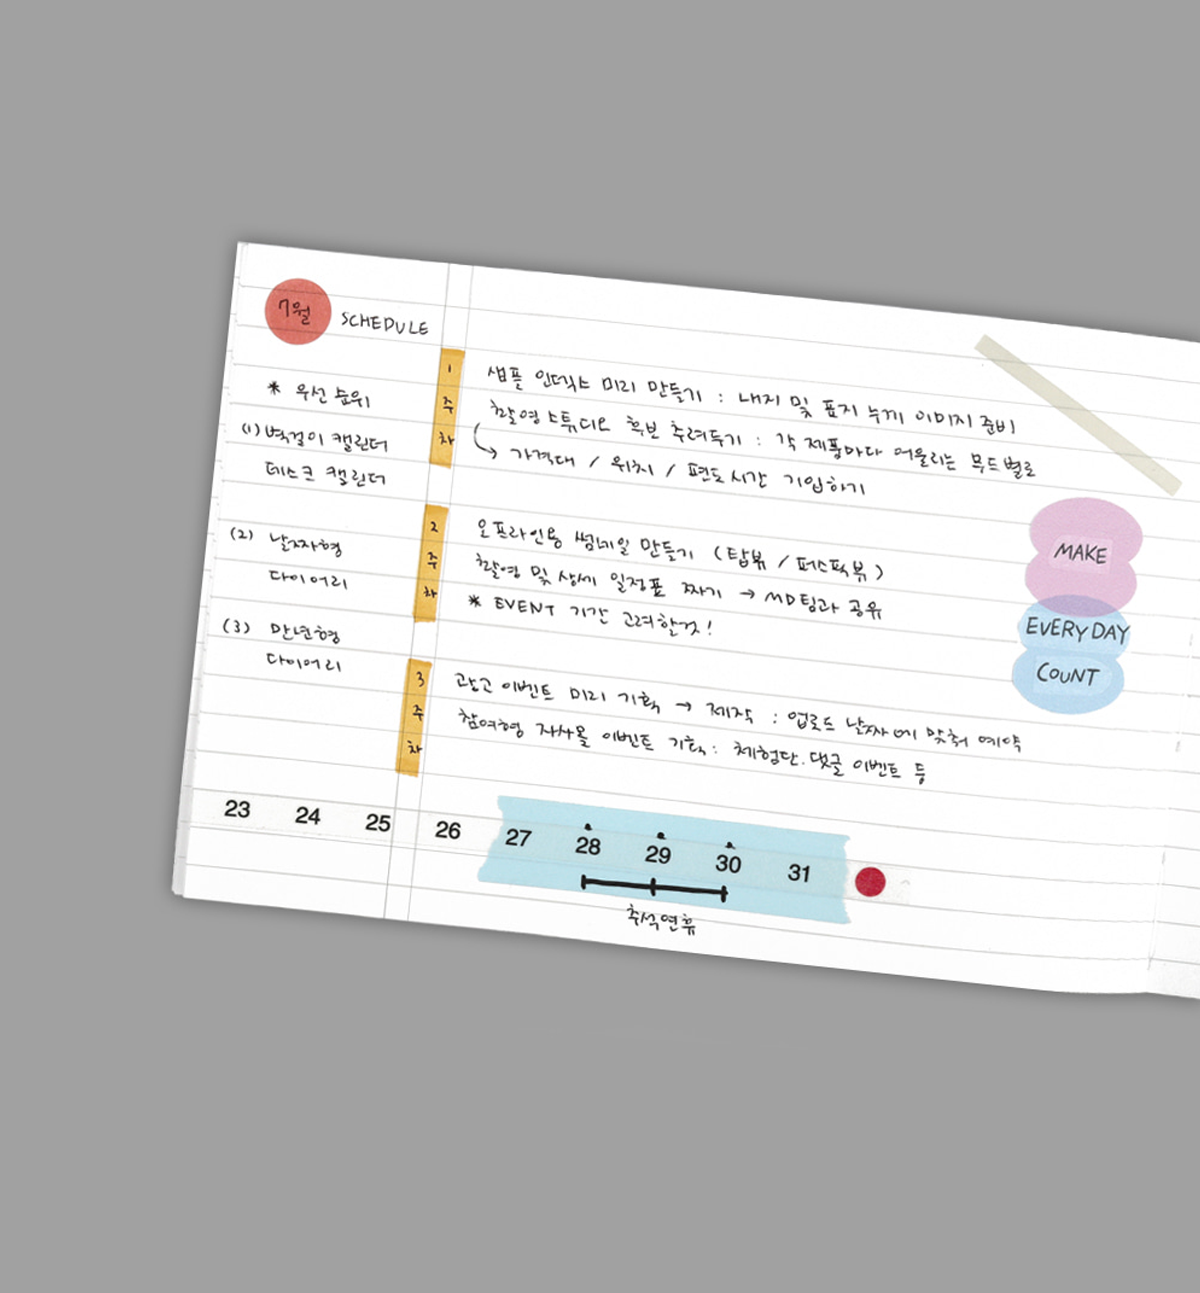 7월 SCHEDULE
* 우선순위
(1) 벽걸이 캘린더
데스크 캘린더
(2) 날짜형
다이어리
(3) 만년형
다이어리
1주차
샘플 인덱스 미리 만들기 : 내지 및 표지 누끼 이미지 준비
촬영 스튜디오 후보 추려두기 : 각 제품마다 어울리는 무드별로
→ 가격대 / 위치 / 편도시간 기입하기
2주차
오프라인용 썸네일 만들기 (탑뷰 / 퍼스펙뷰)
촬영 및 상세 일정표 짜기 → MD팀과 공유
* EVENT 기간 고려할것!
3주차
광고 이벤트 미리 기획 → 제작 : 업로드 날짜에 맞춰 예약
참여형 자사몰 이벤트 기획 : 체험단. 댓글 이벤트 등
MAKE
EVERYDAY
COUNT
23 24 25 26 27 28 29 30 31
추석연휴